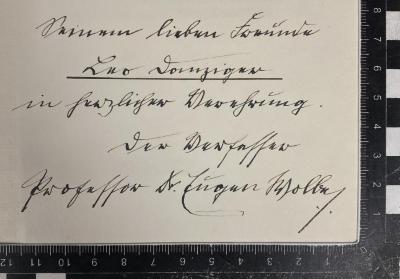 Seinem lieben Freunde
Leo Danziger
in herzlicher Verehrung.
Der Verfasser
Professor Dr. Eugen Wolbe
8
7
6
5
4
3
2
1
1
2
3
4
5
6
7
8
9
10
11
12